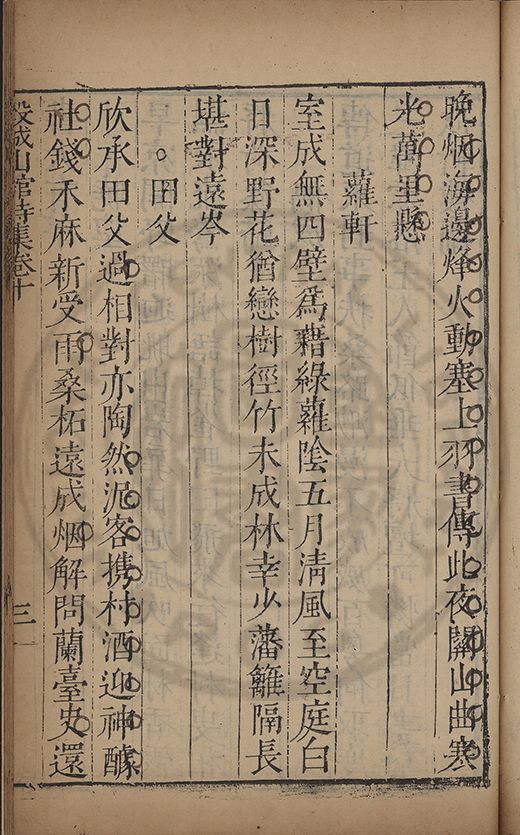 晚烟海邊烽火動塞上羽書傳此夜關山曲寒
光萬里懸
蘿軒
室成無四壁爲藉綠蘿陰五月清風至空庭白
日深野花猶戀樹徑竹未成林幸少藩籬隔長
堪對遠岑
田父
欣承田父過相對亦陶然泥客携村酒迎神醵
社錢禾麻新受雨桑柘遠成烟解問蘭臺史還
穀城山館詩集卷十
三